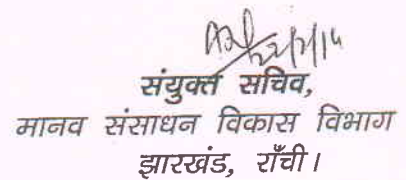 22/7/14
संयुक्त सचिव,
मानव संसाधन विकास विभाग
झारखंड, राँची।